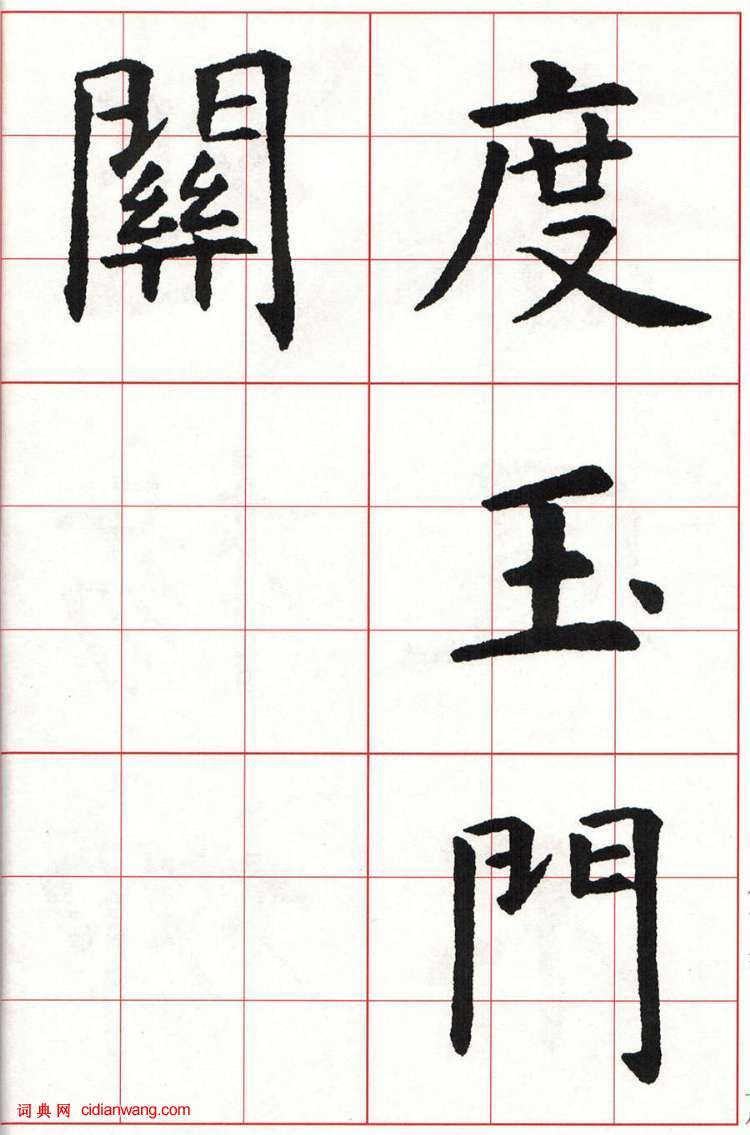 度玉門
關
词典网 cidianwang.com